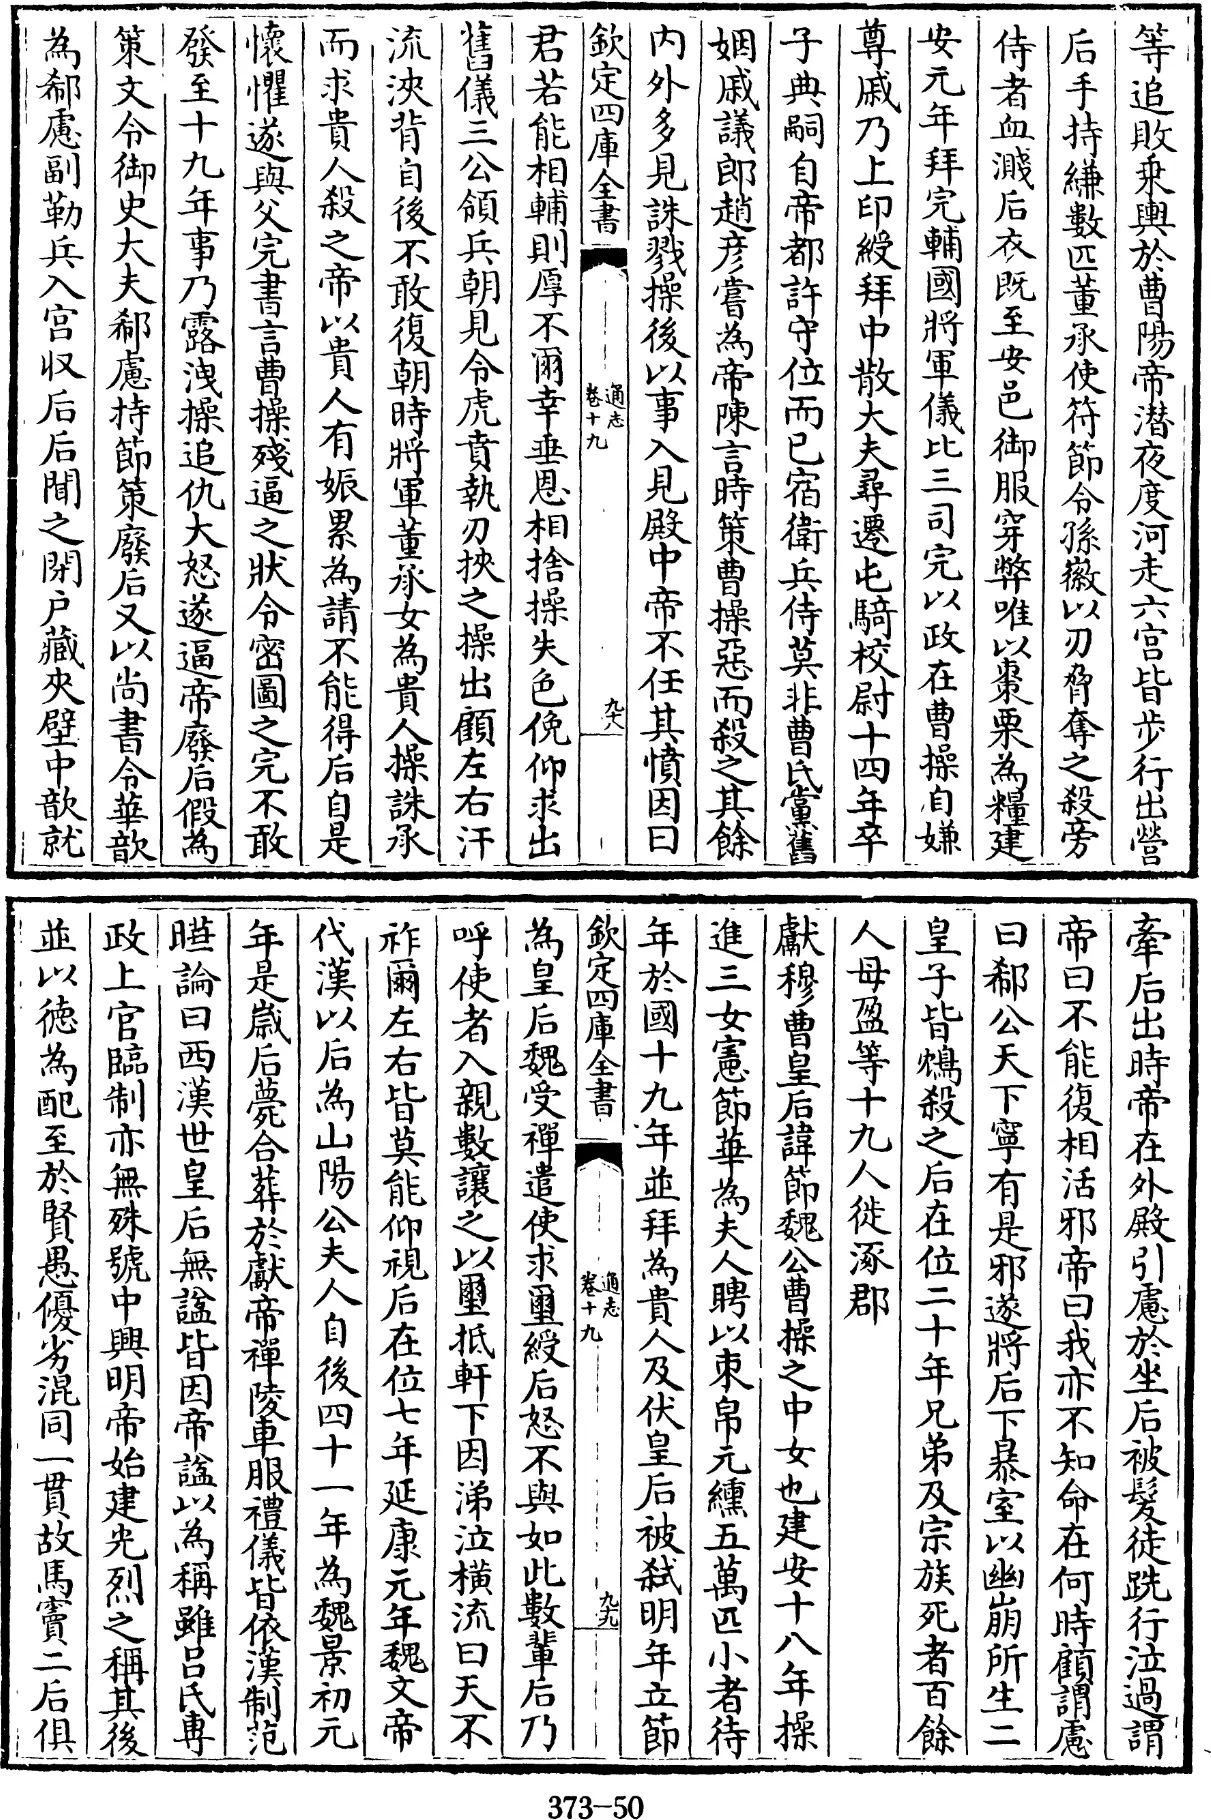 等追敗乗輿於曹陽帝潜夜度河走六宫皆步行出營
后手持縑數匹董承使符節令孫徽以刃脅奪之殺旁
侍者血濺后衣既至安邑御服穿弊唯以棗栗為糧建
安元年拜完輔國將軍儀比三司完以政在曹操自嫌
尊戚乃上印綬拜中散大夫尋遷屯騎校尉十四年卒
子典嗣自帝都許守位而已宿衛兵侍莫非曹氏黨舊
姻戚議郎趙彦嘗為帝陳言時策曹操惡而殺之其餘
内外多見誅戮操後以事入見殿中帝不任其憤因曰
欽定四庫全書
通志
卷十九
九十八
君若能相輔則厚不爾幸垂恩相捨操失色俛仰求出
舊儀三公領兵朝見令虎賁執刃挾之操出顧左右汗
流浹背自後不敢復朝時將軍董承女為貴人操誅承
而求貴人殺之帝以貴人有娠累為請不能得后自是
懷懼遂與父完書言曹操殘逼之狀令密圖之完不敢
發至十九年事乃露洩操追仇大怒遂逼帝廢后假為
策文令御史大夫郗慮持節策廢后又以尚書令華歆
為郗慮副勒兵入宫収后后聞之閉户藏夾壁中歆就
牽后出時帝在外殿引慮於坐后被髪徒跣行泣過謂
帝曰不能復相活邪帝曰我亦不知命在何時顧謂慮
曰郗公天下寧有是邪遂將后下暴室以幽崩所生二
皇子皆鴆殺之后在位二十年兄弟及宗族死者百餘
人母盈等十九人徙涿郡
獻穆曹皇后諱節魏公曹操之中女也建安十八年操
進三女憲節華為夫人聘以束帛元纁五萬匹小者待
年於國十九年並拜為貴人及伏皇后被弑明年立節
欽定四庫全書
通志
卷十九
九十九
為皇后魏受禪遣使求璽綬后怒不與如此數輩后乃
呼使者入親數讓之以璽抵軒下因涕泣横流曰天不
祚爾左右皆莫能仰視后在位七年延康元年魏文帝
代漢以后為山陽公夫人自後四十一年為魏景初元
年是嵗后薨合葬於獻帝禪陵車服禮儀皆依漢制范
瞱論曰西漢世皇后無諡皆因帝諡以為稱雖吕氏專
政上官臨制亦無殊號中興明帝始建光烈之稱其後
並以徳為配至於賢愚優劣混同一貫故馬竇二后俱
373-50